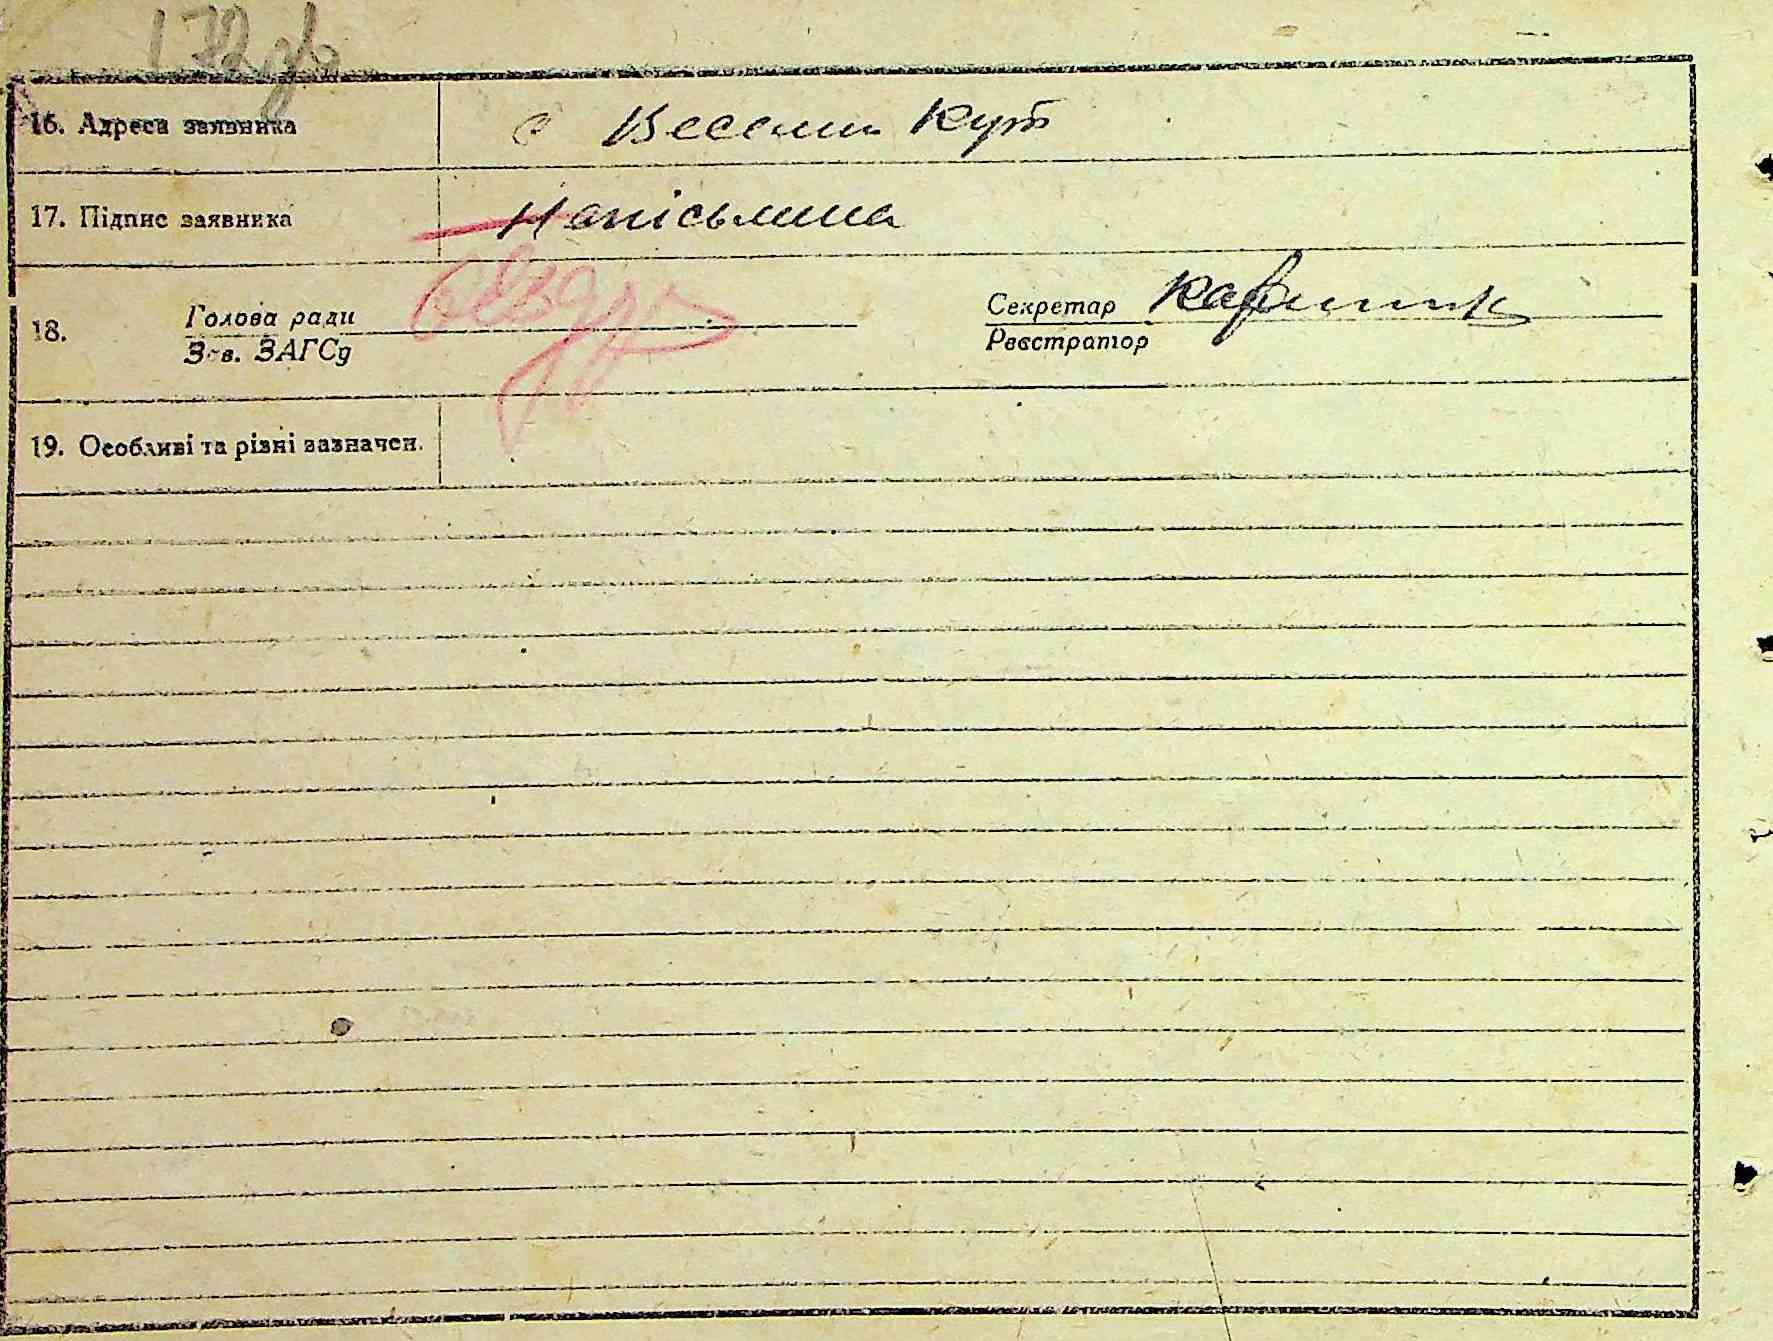 172 зв
16. Адреса заявника с Веселий Кут
17. Підпис заявника Непісьмина
18. Голова ради Секретар
Зав. ЗАГСу Реєстратор
19. Особливі та різні зазначен.